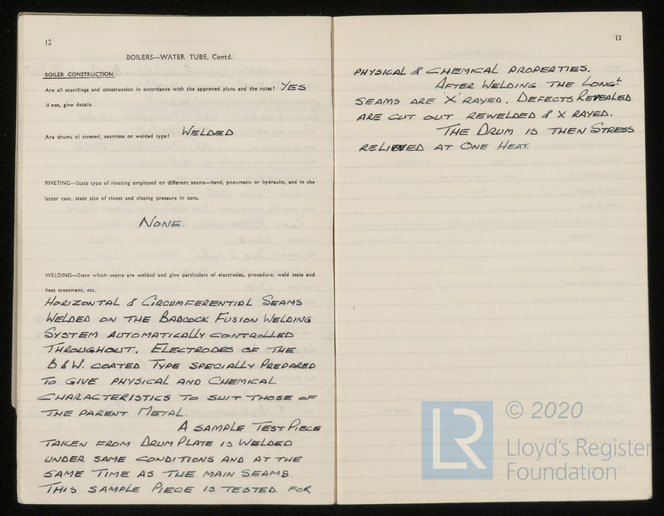 12
BOILERS—WATER TUBE, Contd.
BOILER CONSTRUCTION
Are all scantlings and construction in accordance with the approved plans and the rules? YES
If not, give details
Are drums of riveted, seamless or welded type? WELDED
RIVETING—State type of riveting employed on different seams—hand, pneumatic or hydraulic, and in the
latter case, state size of rivets and closing pressure in tons.
NONE
WELDING—State which seams are welded and give particulars of electrodes, procedure, weld tests and
heat treatment, etc.
HORIZONTAL & CIRCUMFERENTIAL SEAMS
WELDED ON THE BABCOCK FUSION WELDING
SYSTEM AUTOMATICALLY CONTROLLED
THROUGHOUT. ELECTRODES OF THE
B & W. COATED TYPE SPECIALLY PREPARED
TO GIVE PHYSICAL AND CHEMICAL
CHARACTERISTICS TO SUIT THOSE OF
THE PARENT METAL.
A SAMPLE TEST PIECE
TAKEN FROM DRUM PLATE IS WELDED
UNDER SAME CONDITIONS AND AT THE
SAME TIME AS THE MAIN SEAMS.
THIS SAMPLE PIECE IS TESTED FOR
13
PHYSICAL & CHEMICAL PROPERTIES.
AFTER WELDING THE LONGL
SEAMS ARE X RAYED. DEFECTS REVEALED
ARE CUT OUT REWELDED & X RAYED.
THE DRUM IS THEN STRESS
RELIEVED AT ONE HEAT.
LR
© 2020
Lloyd's Register
Foundation